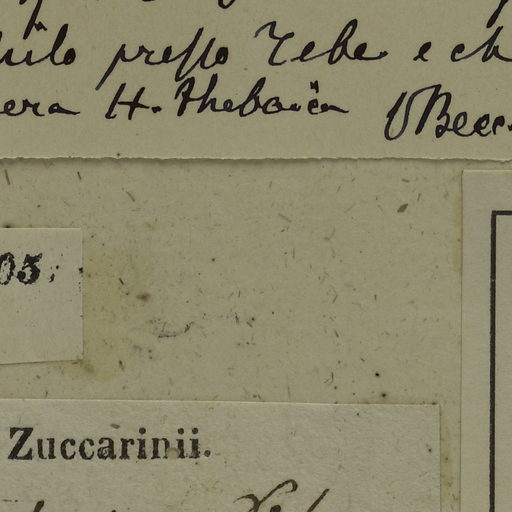 presso Tebe e ch
era H. thebaica OBecc.
05.
Zuccarinii.